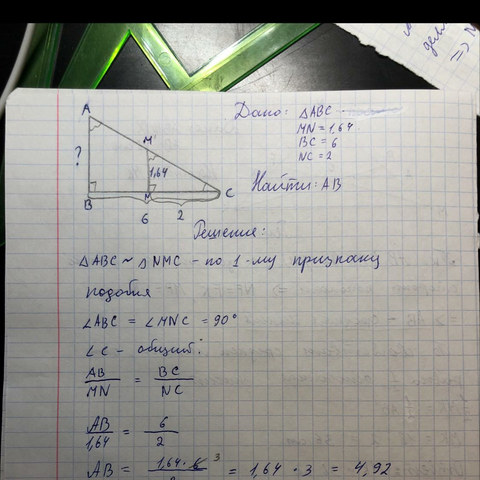 A
?
M
1,64
B
M
C
6
2
Дано: △ABC
MN = 1,64
BC = 6
NC = 2
Найти: AB
Решение:
△ABC ~ △NMC - по 1-му признаку
подобия
∠ABC = ∠MNC = 90°
∠C - общий:
AB/MN = BC/NC
AB/1,64 = 6/2
AB = 1,64 · 6 3 = 1,64 · 3 = 4,92